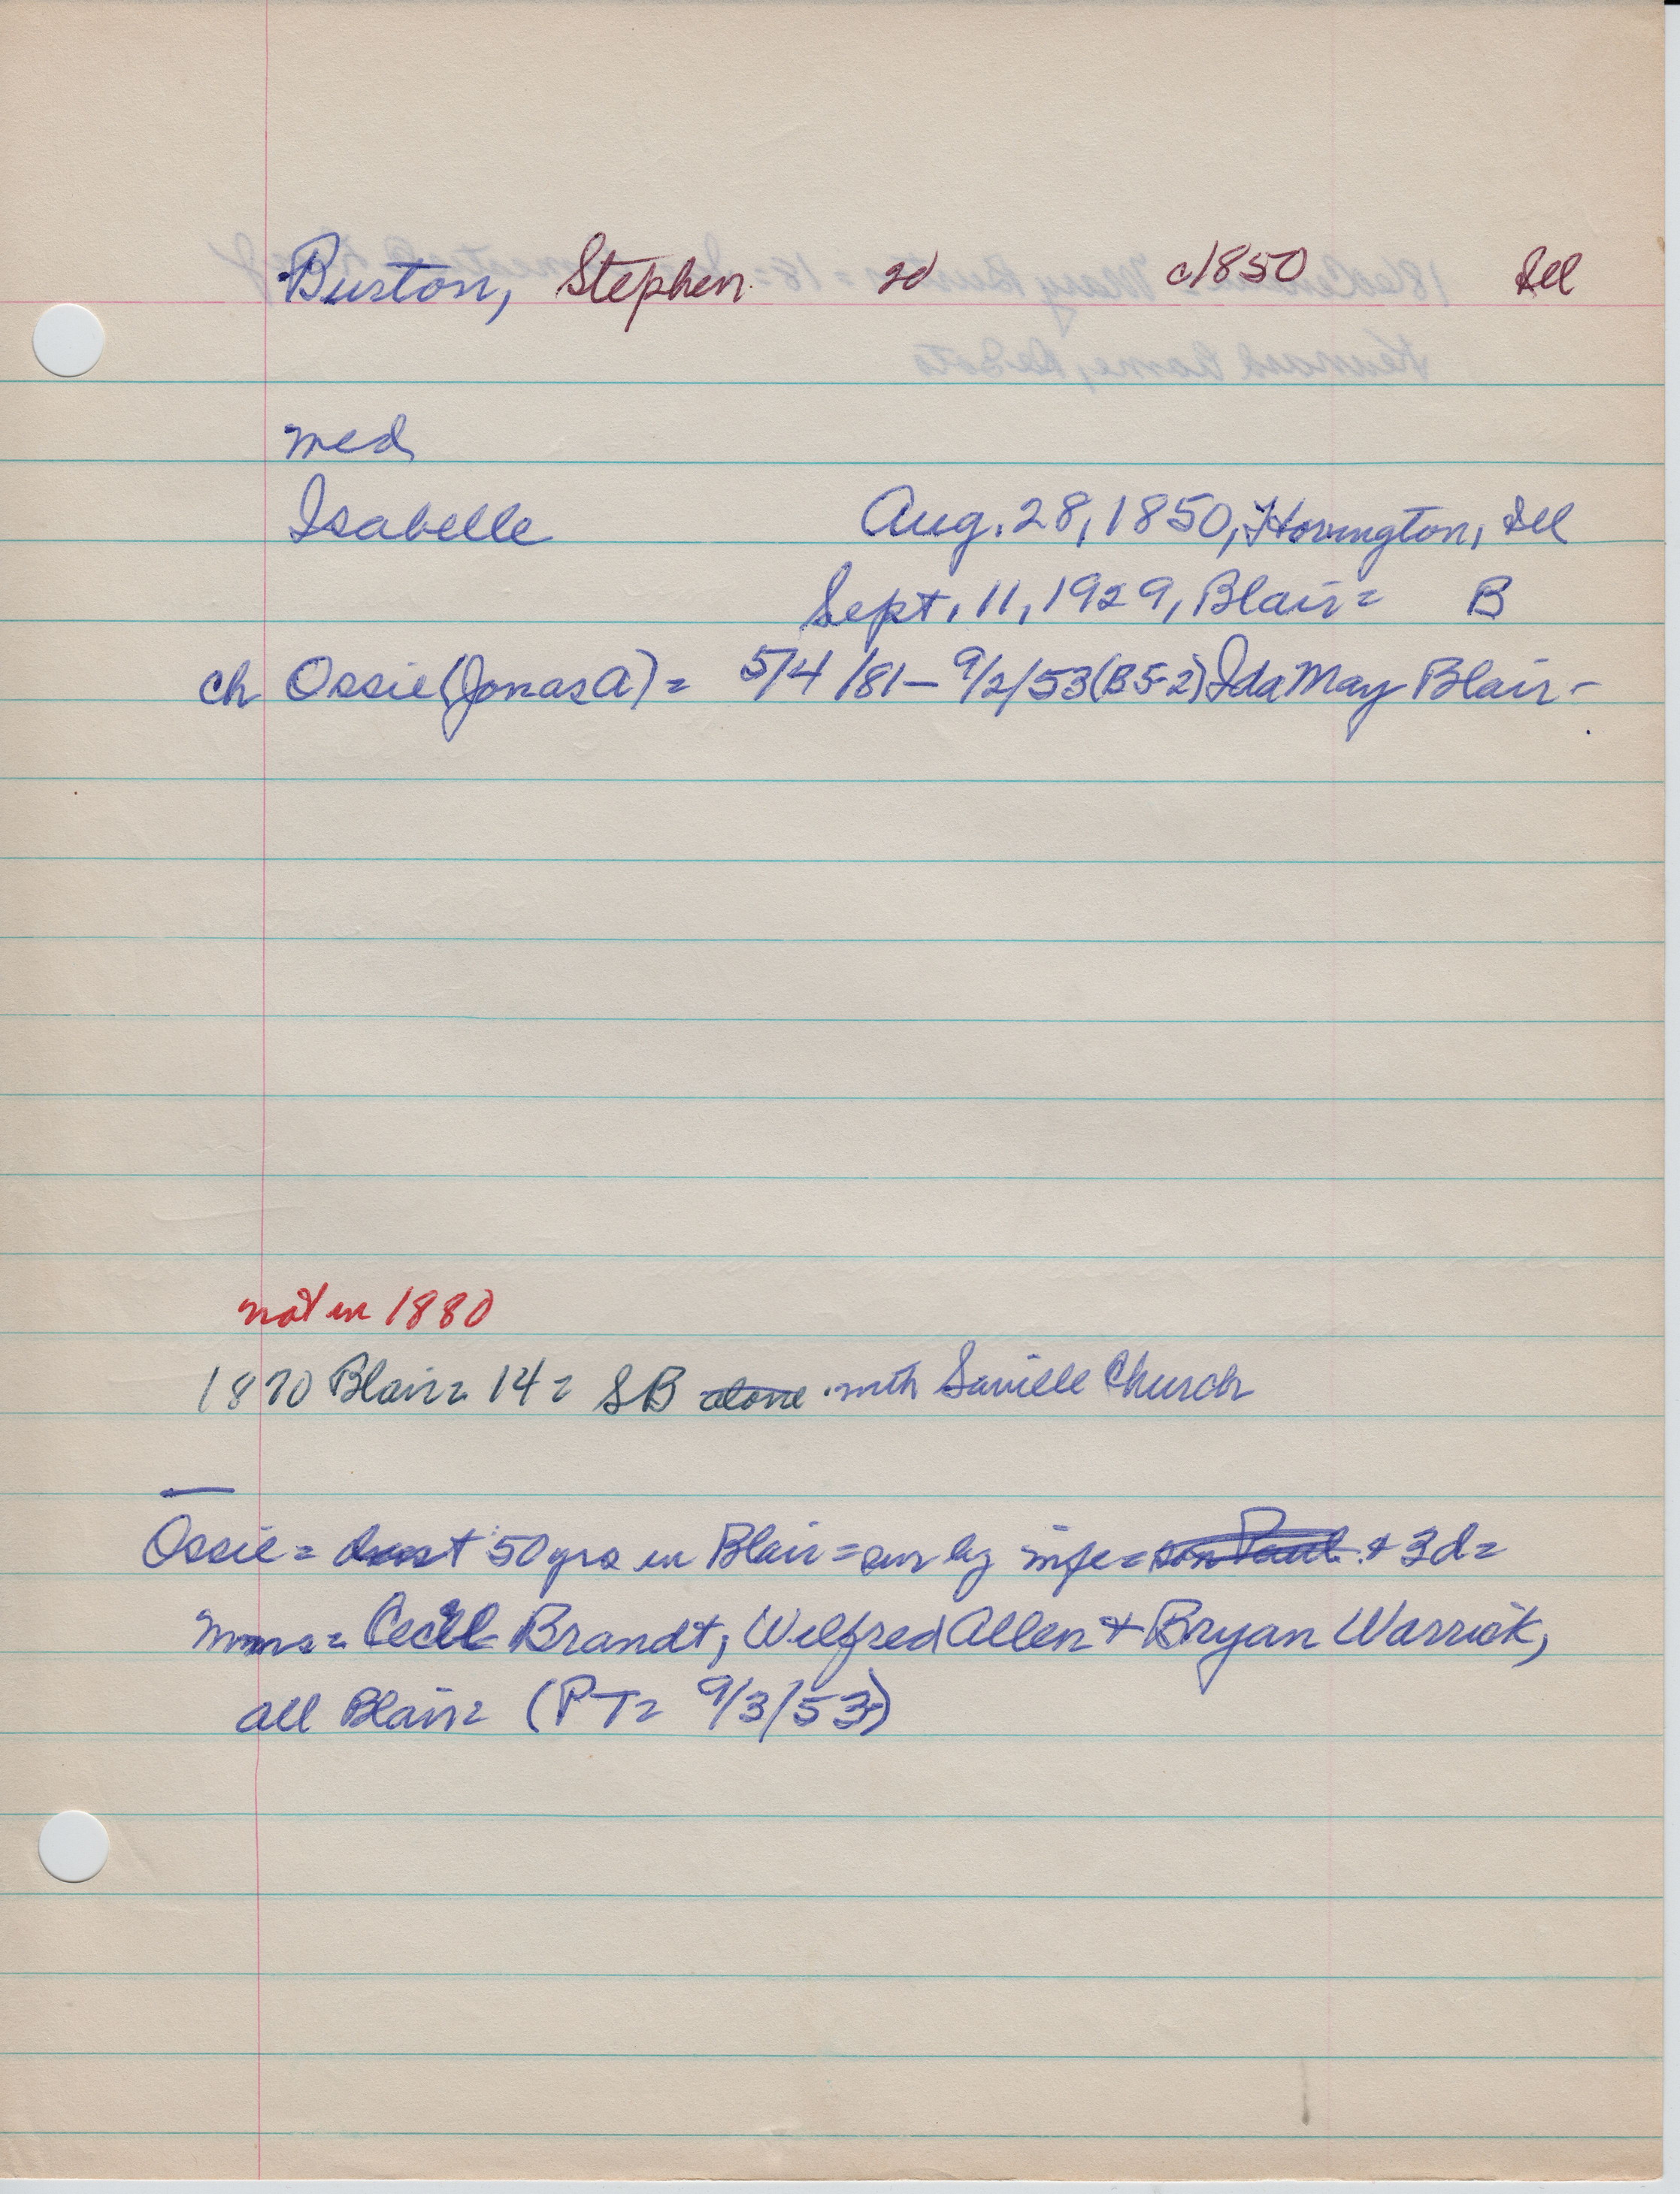 Burton, Stephen 2d c1850 Ill
med
Isabelle Aug. 28, 1850, Ill
Sept. 11, 1929, Blair = B
ch Ossie (Jonas A) = 5/4/81 – 9/2/53 (B5-2) Ida May Blair –
not in 1880
1870 Blair = 14 = SB alone with Saville Church
Ossie = 50 yrs in Blair = sur by wife = son Paul + 3d =
Mmes = Cecil Brandt, Wilfred Allen + Bryan Warrick,
all Blair = (PT = 9/3/53)